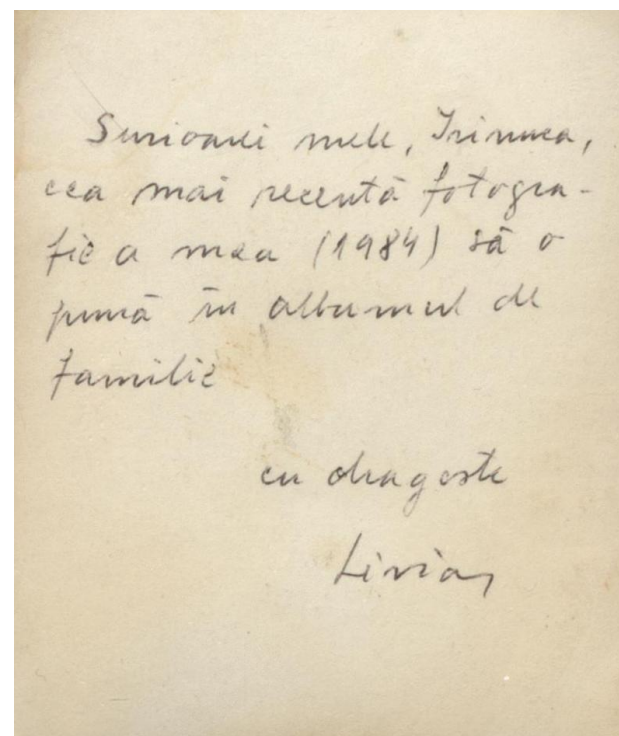 Surioarei mele, Irinuca,
cea mai recentă fotogra-
fie a mea (1984) să o
pună în albumul de
familie
cu dragoste
Livia